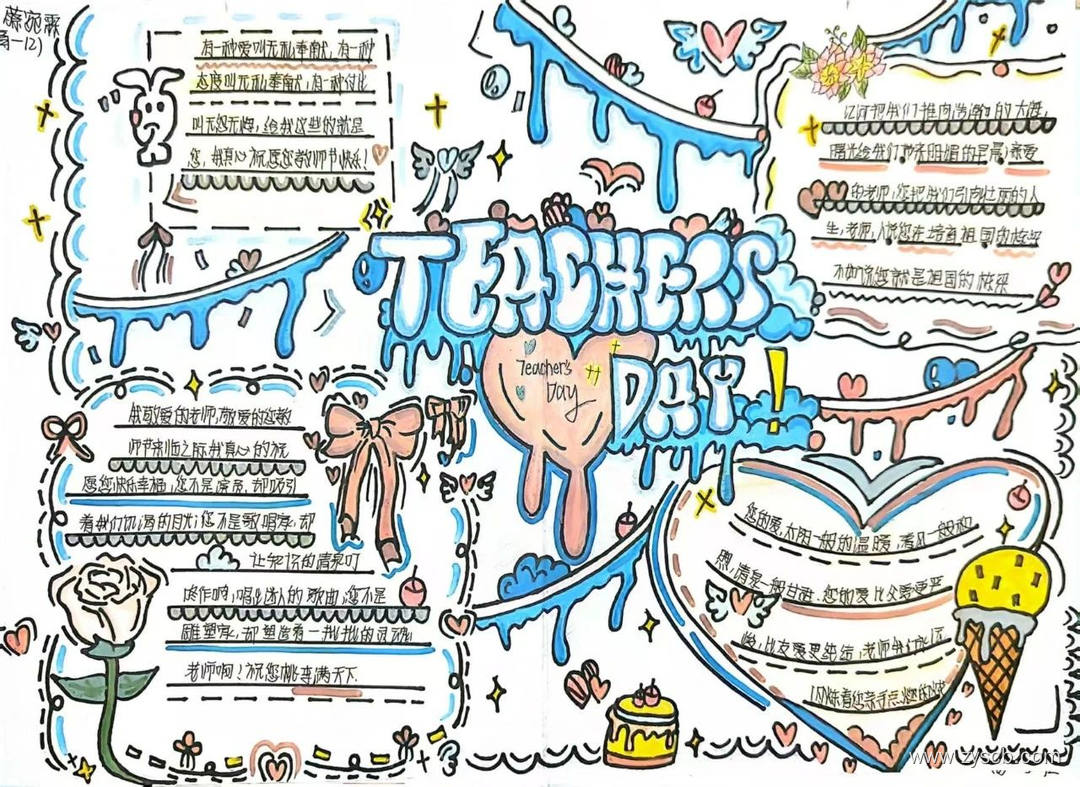 有一种爱叫无私奉献,有一种
态度叫无私奉献,有一种付出
叫无怨无悔,给我这些的就是
您,我真心祝愿您教师节快乐!
TEACHERS
DAY!
Teacher's
Day
江河把我们推向浩瀚的大海,
曙光给我们带来明媚的早晨;亲爱
的老师,您把我们引向壮丽的人
生,老师,人说您在培育祖国的栋梁
不如说您就是祖国的栋梁
我敬爱的老师,敬爱的您教
师节来临之际我真心的祝
愿您快乐幸福,您不是演员,却吸引
着我们饥渴的目光;您不是歌唱家,却
让知识的清泉叮
咚作响,唱出迷人的歌曲;您不是
雕塑家,却塑造着一批批的灵魂
老师啊!祝您桃李满天下
您的爱,太阳一般的温暖,清风一般和
煦,清泉一般甘甜.您的爱比父爱更严
峻,比友爱更纯洁,老师我们
www.zyscb.com